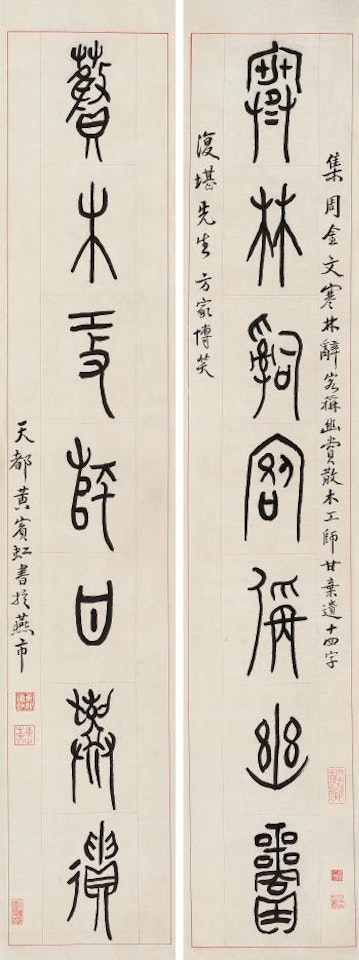 集周金文寒林辭客稱幽賞散木工師甘棄遺十四字
寒林辭客稱幽賞
復堪先生方家博笑
散木工師甘棄遺
天都黃賓虹書於燕市